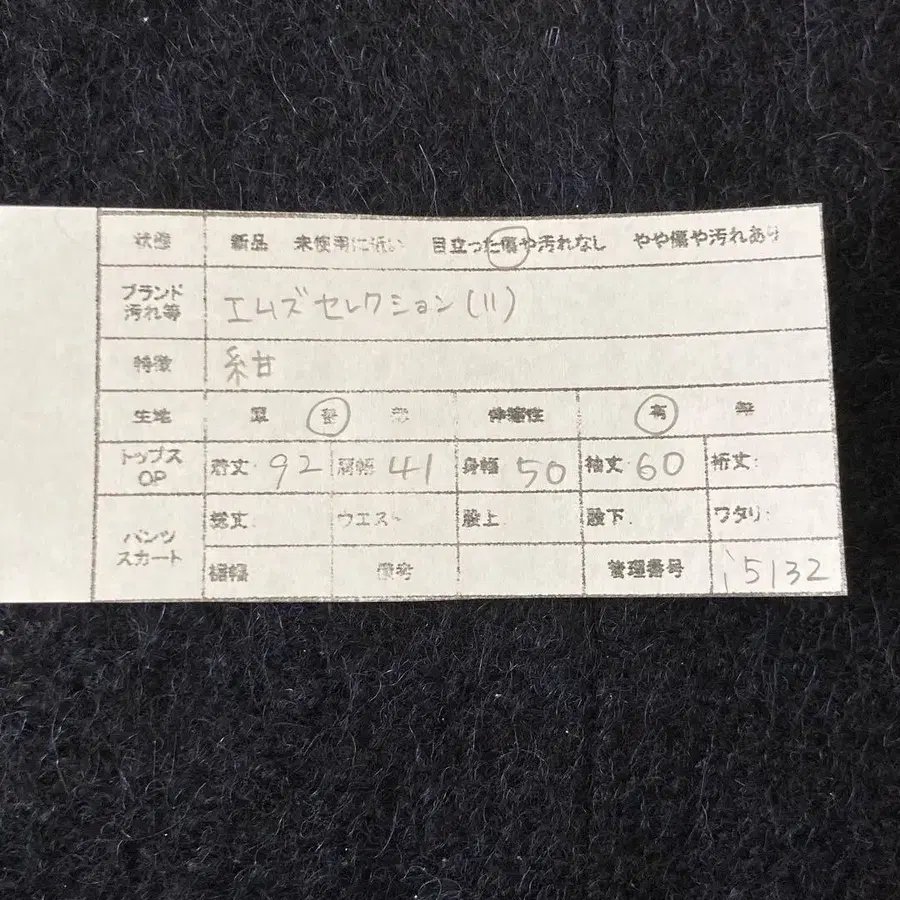 状態 新品 未使用に近い 目立った傷や汚れなし やや傷や汚れあり
ブランド
汚れ等
エムズセレクション(11)
特徴 紺
生地 厚 普 薄 伸縮性 有 無
トップス
OP
着丈: 92 肩幅: 41 身幅: 50 袖丈: 60 裄丈:
パンツ
スカート
総丈: ウエスト 股上: 股下: ワタリ:
裾幅 備考 管理番号 i5132